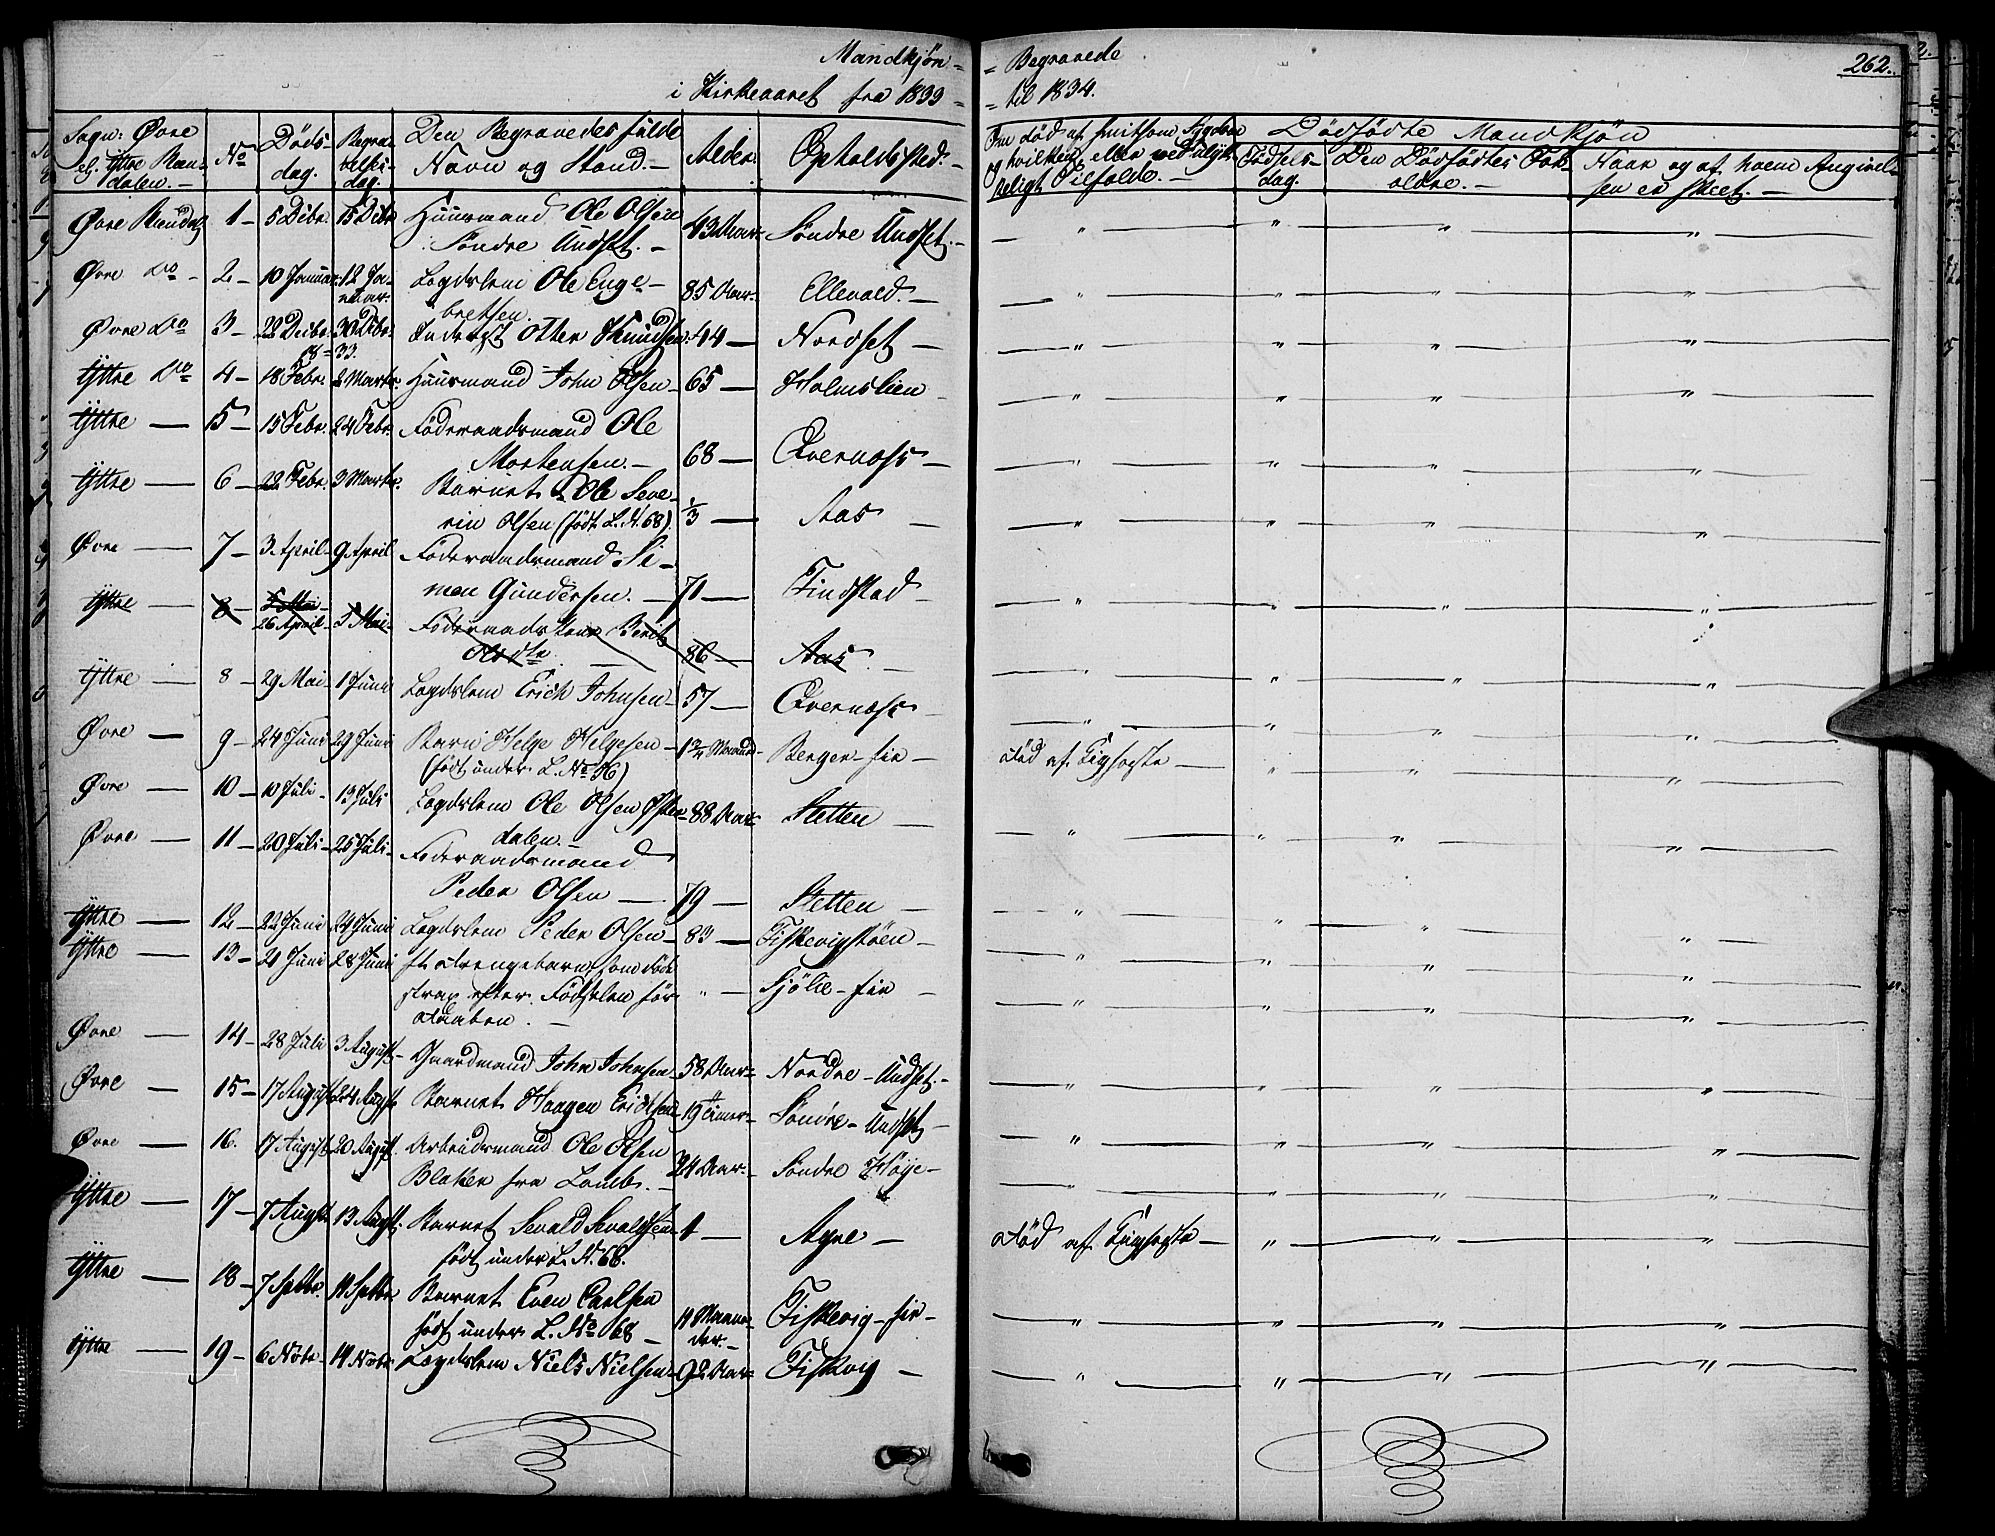 Mandkjøn - = Begravede
i Kirkeaaret fra 1833 - = til 1834.
262.
Sogn: Øvre el. Yttre Ren- dalen. —
No
Døds- dag.
Begra- velses- dag.
Den Begravedes fulde Navn og Stand. —
Alder
Opholdssted. —
Om død af smitsom Sygdom og hvilken, eller ved ulyk- keligt Tilfælde. —
Dødfødte Mandkjøn
Fødsels- dag.
Den Dødfødtes For- ældre. —
Naar og af hvem Angivel- sen er skeet. —
Øvre Rendal 1 — 5 Decbr. 15 Decbr Huusmand Ole Olsen 43 Aar Søndre Undset. —
Søndre Undset. —
Øvre Do — 2 — 10 Januar 12 Ja- nuar. Lægdslem Ole Enge- 85 Aar Ellevold. —
bretsen.
Øvre Do 3 — 28 Decbr. 30 Decbr. Inderst Otter Knudsen 44 — Nordset —
18 = 33.
Yttre Do 4 — 18 Febr. 2 Marts Huusmand John Olsen 65 — Holmslien
Yttre — 5 — 15 Febr. 24 Febr. Føderaadsmand Ole
Mortensen. — 68 — Qvernæss —
Yttre — 6 — 22 Febr. 3 Marts. Barnet Ole Seve-
rin Olsen (født L. N. 68). 1/3 — Aas —
Øvre — 7 — 3 April 9 April Føderaadsmand Si-
mon Gundersen. — 71 — Findstad —
Yttre — 8 — 5 Mai
26 April 5 Mai Føderaadskone Berit
Olsdtr. — 86 — Aas. —
Yttre — 8 — 29 Mai 1 Juni Lægdslem Erich Johnsen 57 — Qvernæss
Øvre — 9 — 24 Juni 29 Juni Barn Helge Helgesen — Maaned Berger-eie — død af Kighoste —
(født under L. No 16)
Øvre — 10 — 10 Juli — 13 Juli Lægdslem Ole Olsen Østen- 88 Aar Stetten —
dalen. —
Øvre — 11 — 20 Juli — 25 Juli Føderaadsmand
Peder Olsen — 79 — Stetten —
Yttre — 12 — 22 Juni 24 Juni Lægdslem Peder Olsen 83 — Fiskevigstøen —
Yttre — 13 — 21 Juni 28 Juni Et drengebarn som døde
strax efter Fødselen før " — Sjølie-eie —
daaben. —
Øvre — 14 — 28 Juli 3 August Gaardmand John Johnsen 58 Aar Nordre-Undset. —
Øvre — 15 — 17 August 24 Augst Barnet Haagen Erichsen 19 Timer Søndre-Undset —
Øvre — 16. 17 August 20 Augst. Arbeidsmand Ole Olsen
Blaker fra Lomb. — 24 Aar Søndre Høye —
Yttre — 17 — 7 Augst 13 Augst. Barnet Sevald Sevaldsen 1 — Agre — død af Kighoste —
født under L. N. 68.
Yttre — 18 — 7 Septbr. 14 Septbr. Barnet Even Carlsen
født under L. No 68 — 11 Maane- der. — Fiskevig-eie —
Yttre — 19 — 6 Novbr 14 Novbr Lægdslem Niels Nielsen 92 Aar Fiskvig —